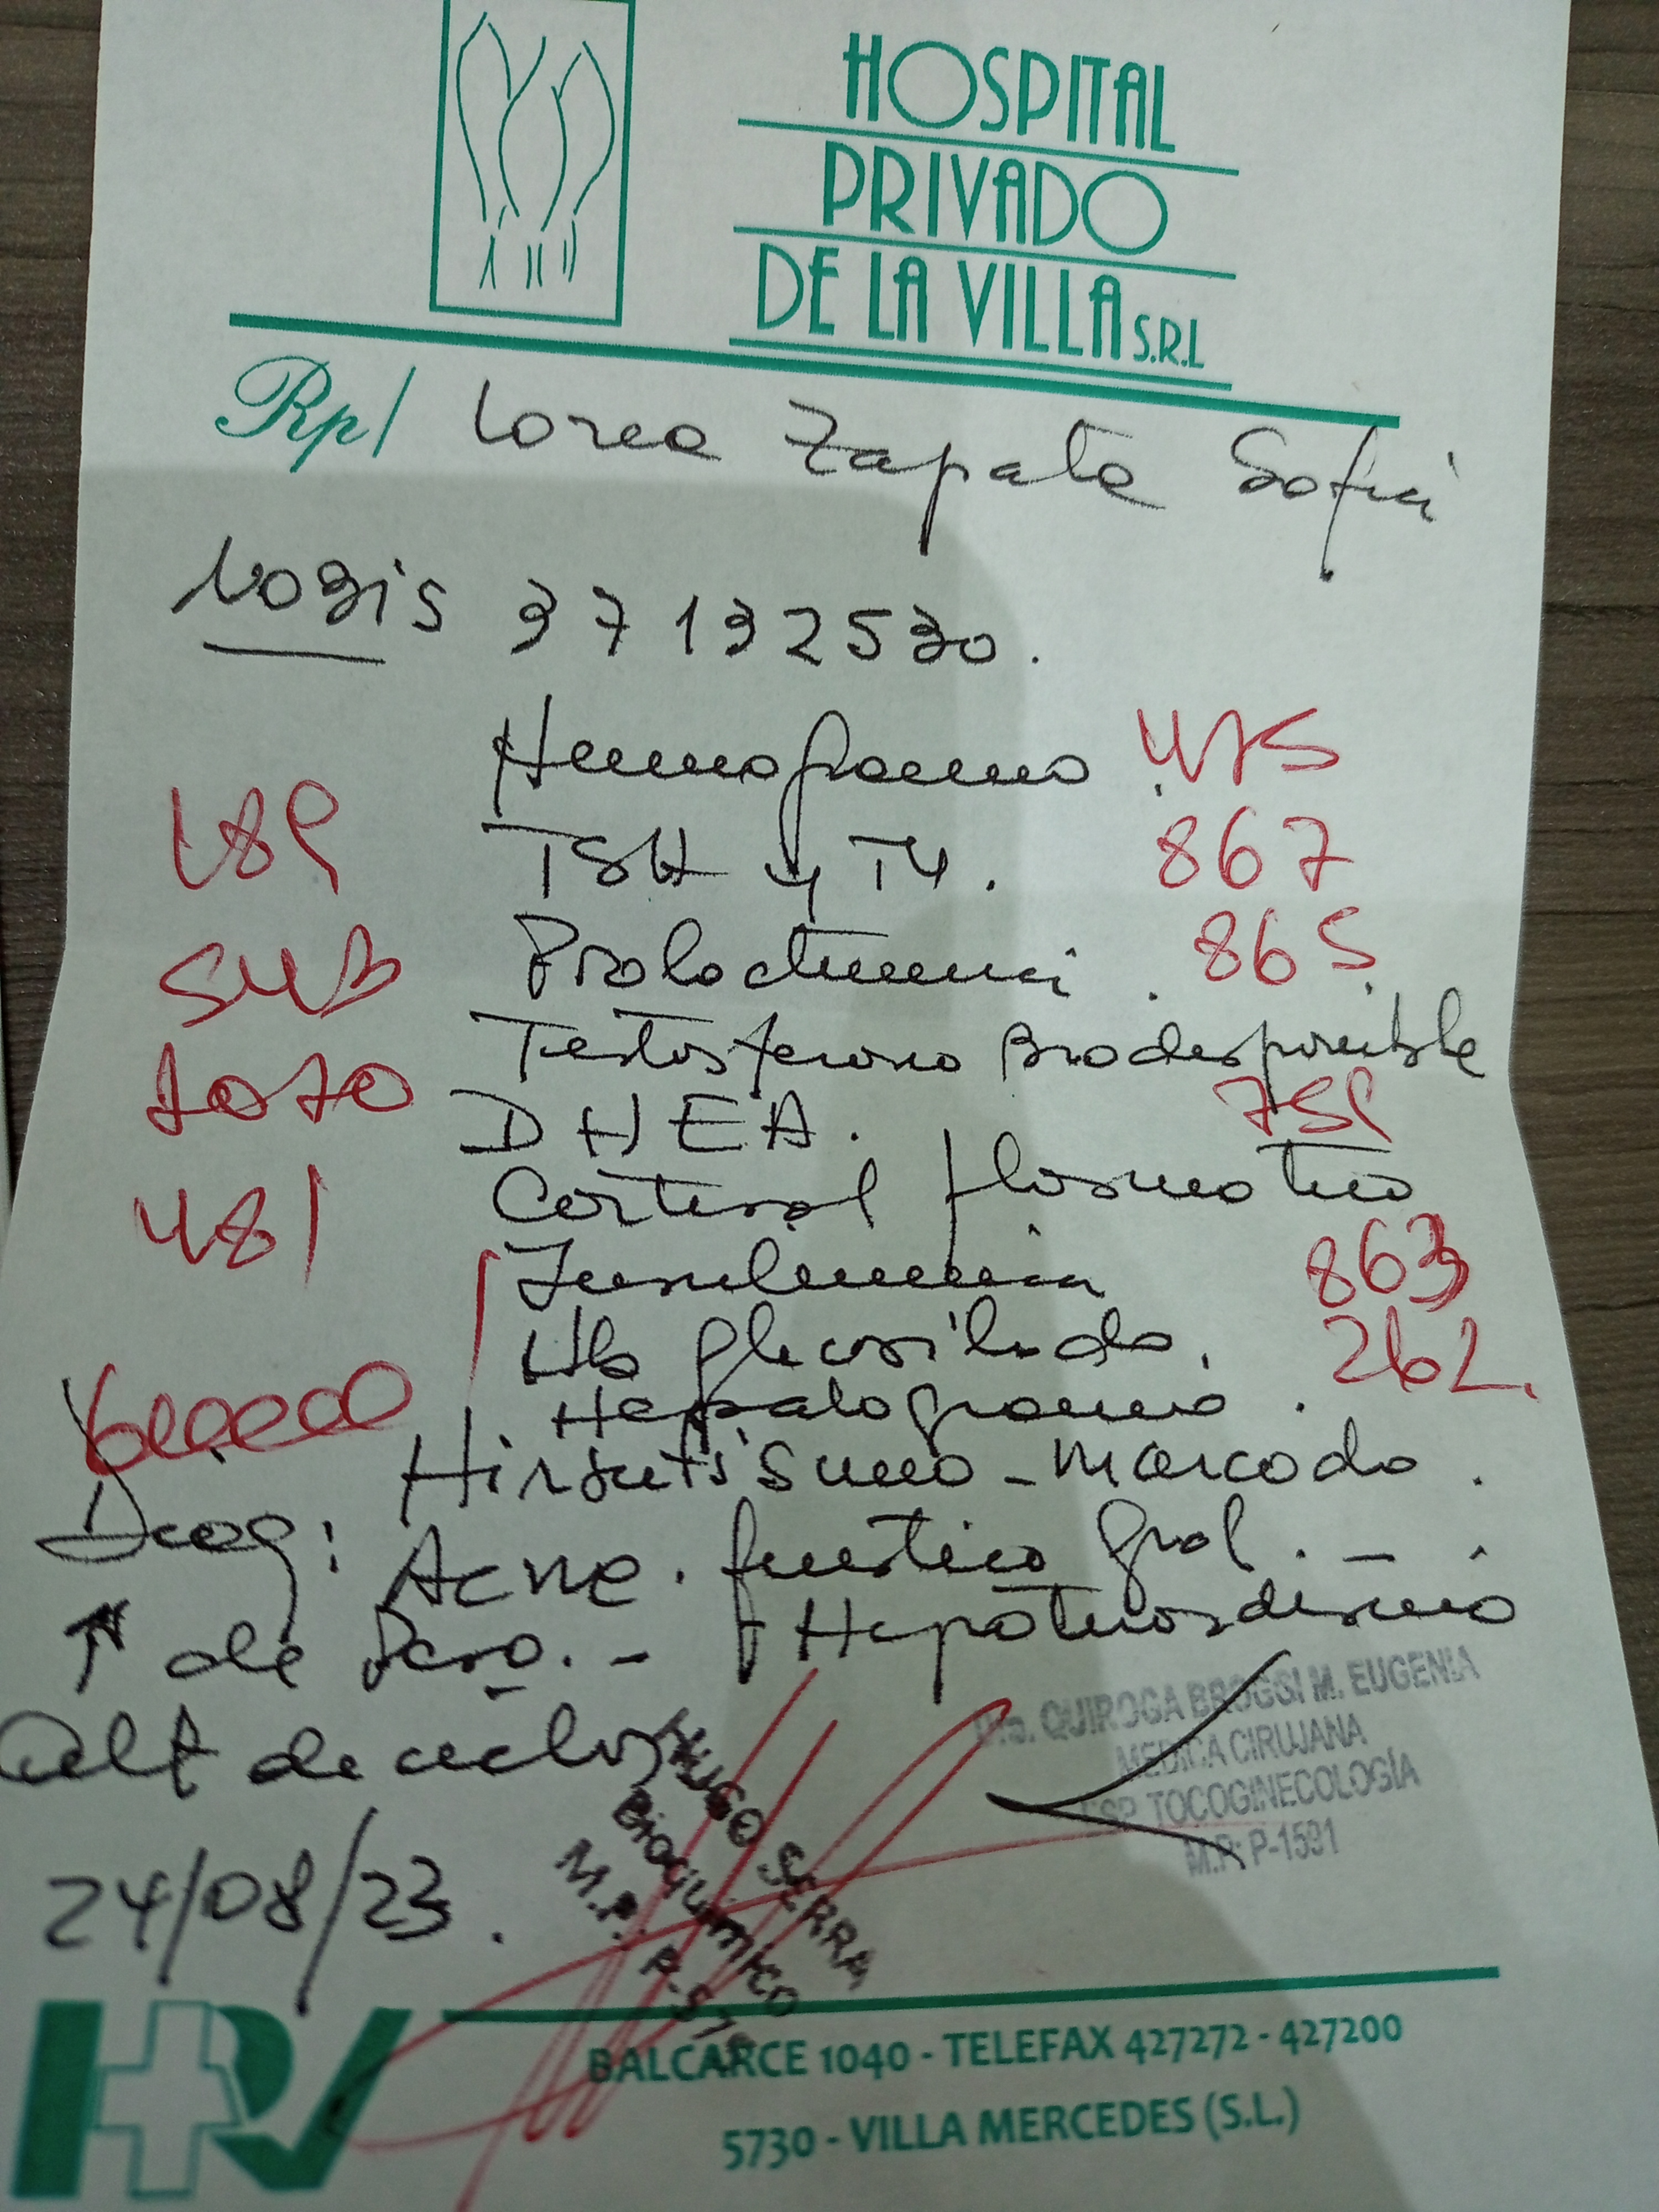 HOSPITAL
PRIVADO
DE LA VILLA S.R.L
Rp/ Lorea Zapata Sofia
37132530.
Hemograma 475
TSH y T4. 867
Prolactinemia. 865
Testosterona Biodisponible
1070
DHEA.
Cortisol plasmatico
481
Insulinemia 863
Hb glicosilada. 262.
Hepatograma.
Hirsutismo - marcado.
Diag: Acne. gral. -
↑ de Peso. - Hipotiroidismo
Alt de ciclos
DRA. QUIROGA BROGGI M. EUGENIA
MEDICA CIRUJANA
ESP. TOCOGINECOLOGÍA
M.P: P-1591
HUGO SERRA
Bioquímico
24/08/23.
HPV
BALCARCE 1040 - TELEFAX 427272 - 427200
5730 - VILLA MERCEDES (S.L.)